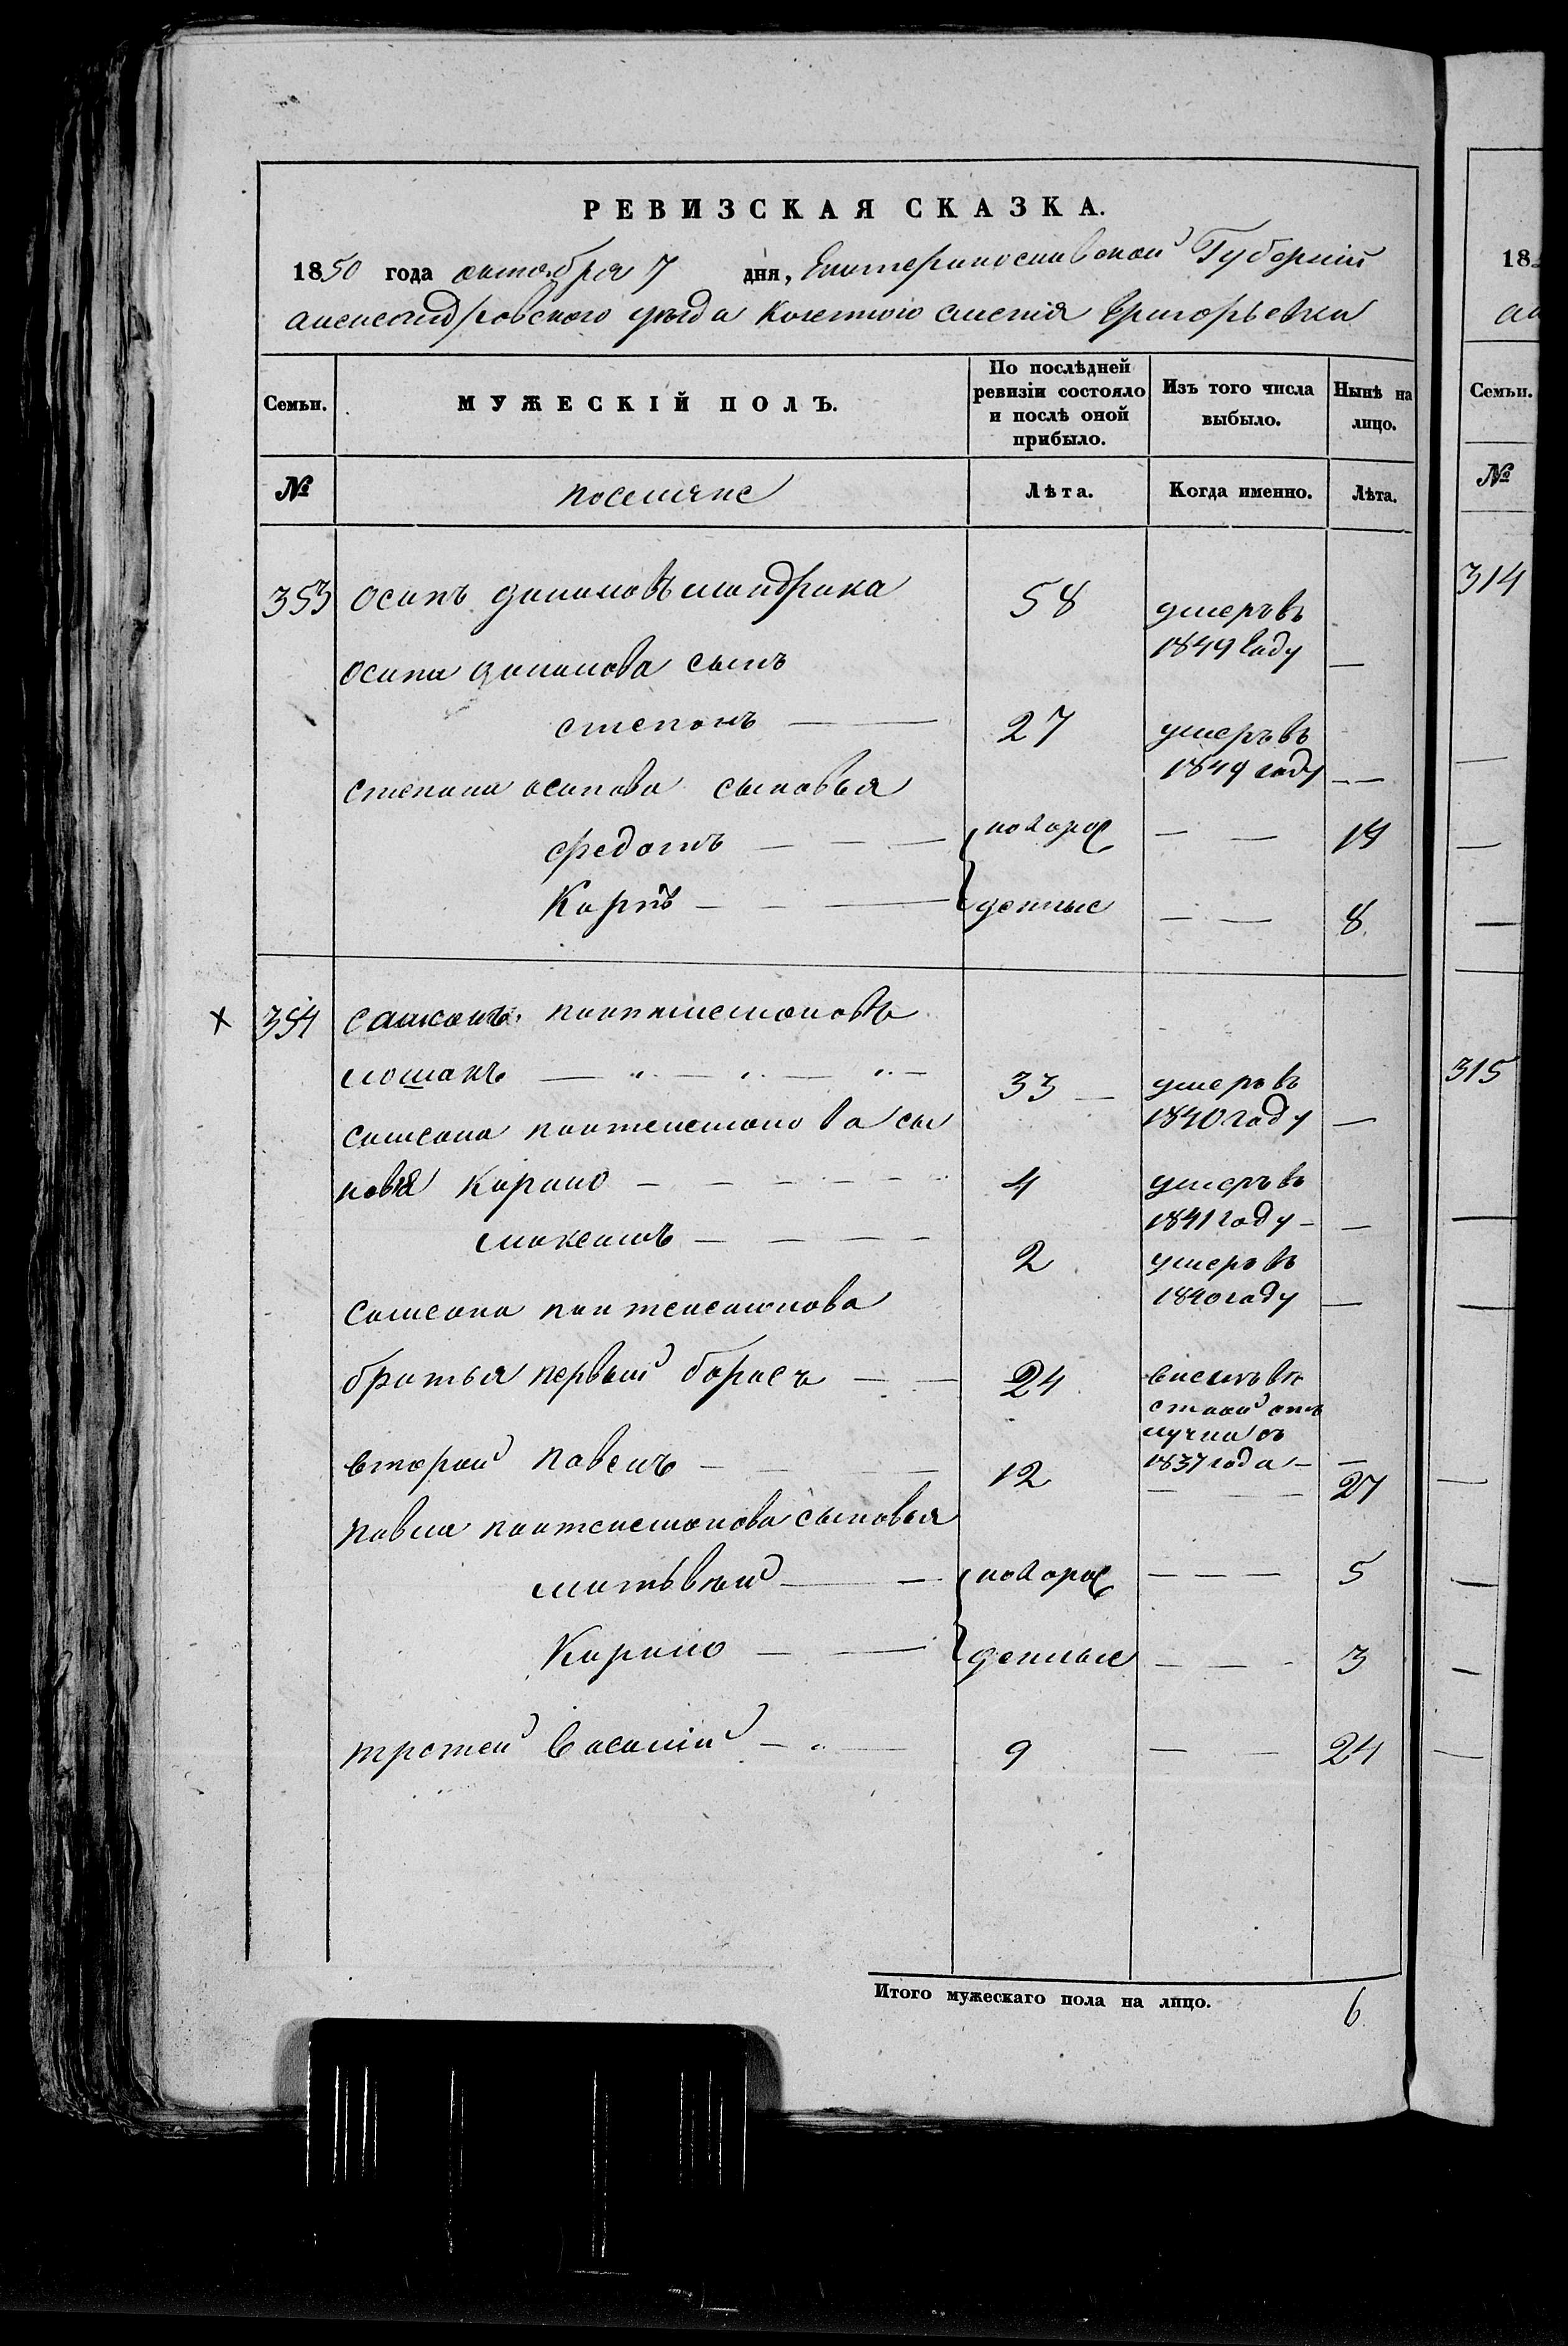 РЕВИЗСКАЯ СКАЗКА.
1850 года октября 7 дня, Екатеринославской Губерніи
александровского уезда Казенного сиенія Григорьевки
Семьи. МУЖЕСКІЙ ПОЛЪ. По послѣдней ревизіи состояло и послѣ оной прибыло. Изъ того числа выбыло. Нынѣ на лицо.
№ поселяне Лѣта. Когда именно. Лѣта.
353 осипъ мандрика 58 умеръ въ
1849 году —
осипа сынъ
степанъ — 27 умеръ въ
1849 году —
степана осипова сыновья
федотъ — — новорож — — 19
Карпъ — — денные — — 8
х 354 самсонъ пантилимоновъ
лошакъ — 33 умеръ въ
1840 году —
самсона пантелимонова сы
новья Кирило — 4 умеръ въ
1841 году — —
максимъ — 2 умеръ въ
1840 году —
самсона пантелимонова
братья первый борисъ — 24
отъ
лучки съ
1837 года — —
второй павелъ — 12 — — 27
павла пантелимонова сыновья
матвѣй — новорож — — — 5
Кирило — денные — — — 3
третей василий — 9 — — 24
Итого мужескаго пола на лицо. 6
18
Семьи.
№
314
315